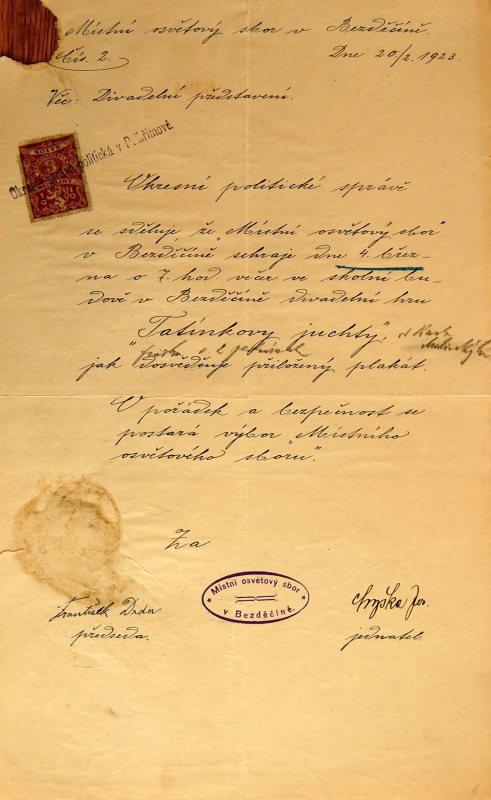 Místní osvětový sbor v Bezděčíně.
Čís. 2.
Dne 20/2. 1923.
Věc: Divadelní představení.
KOLEK
politická v Pelhřimově
Okresní politické správě
se sděluje, že „Místní osvětový sbor
v Bezděčíně" sehraje dne 4. břez-
na o 7. hod večer ve školní bu-
dově v Bezděčíně divadelní hru
„Tatínkovy juchty",
jak dosvědčuje přiložený plakát.
O pořádek a bezpečnost se
postará výbor „Místního
osvětového sboru".
Za
Místní osvětový sbor
v Bezděčíně.
František
předseda.
Jos.
jednatel.